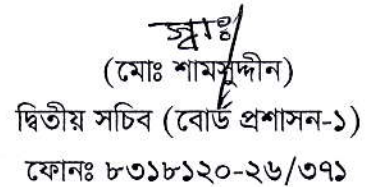 স্বাঃ
(মোঃ শামসুদ্দীন)
দ্বিতীয় সচিব (বোর্ড প্রশাসন-১)
ফোনঃ ৮৩১৮১২০-২৬/৩৭১